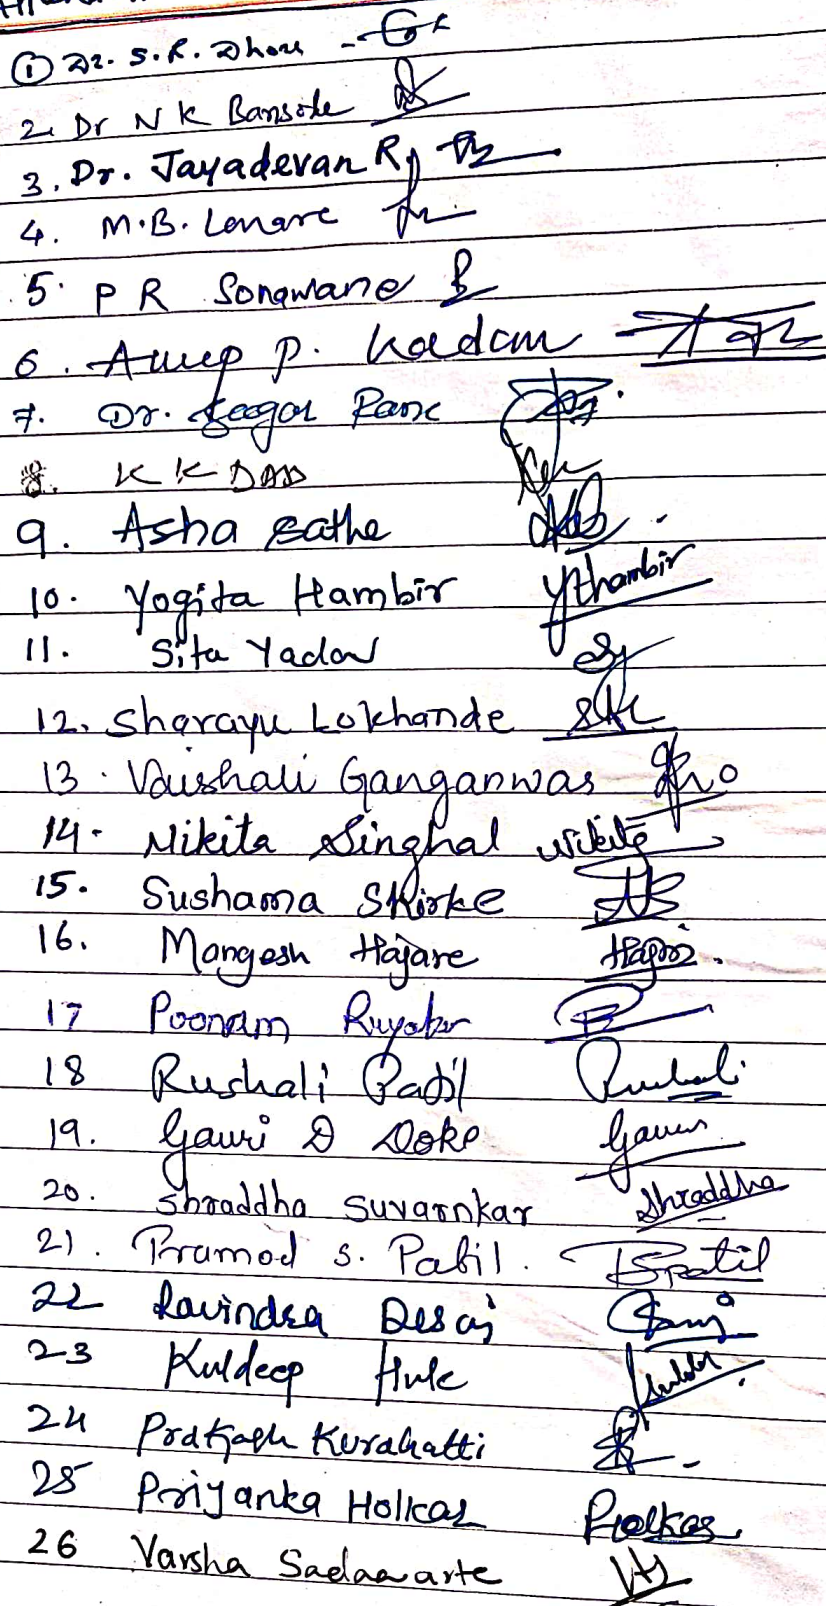 ① Dr. S.R. Dhore
2. Dr N K Bansode
3. Dr. Jayadevan R
4. M.B. Lonare
5. P R Sonawane
6. Anup P. Kadam
7. Dr. Sagar Rane
8. K K DAS
9. Asha Sathe
10. Yogita Hambir Ythambir
11. Sita Yadav
12. Sharayu Lokhande
13. Vaishali Ganganwas
14. Nikita Singhal Nikita
15. Sushama Shirke
16. Mangesh Hajare
17 Poonam
18 Rushali Patil Rushali
19. Gauri D Doke Gauri
20. Shraddha Suvarnkar Shraddha
21. Pramod S. Patil. PSPatil
22 Ravindra Desai
23 Kuldeep Hule
24 Prakash Kurahatti
25 Priyanka Holkar PHolkar
26 Varsha